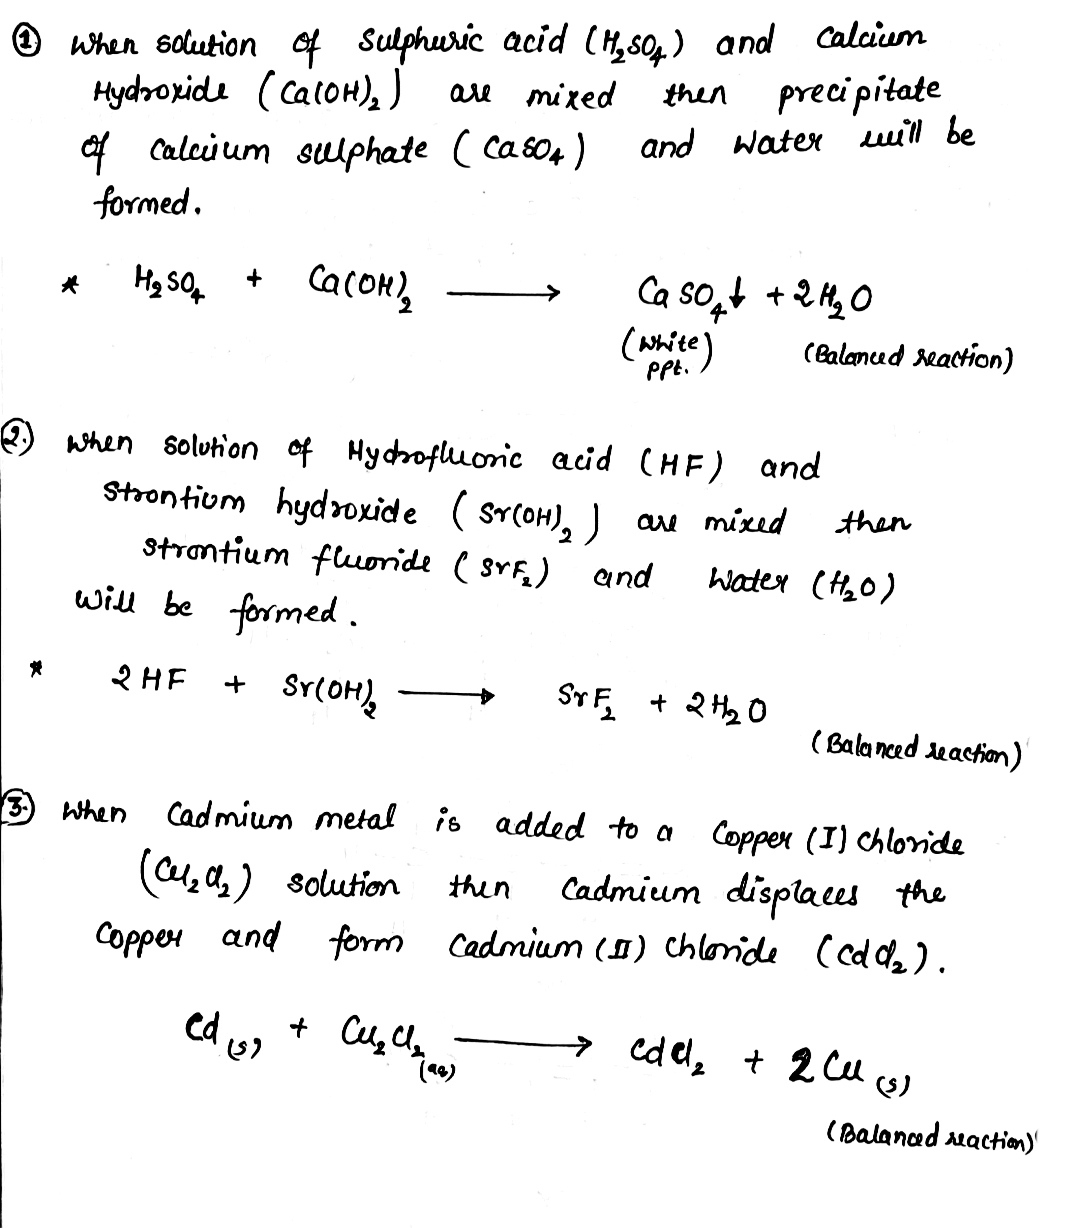 ① When solution of Sulphuric acid (H₂SO₄) and Calcium
Hydroxide (Ca(OH)₂) are mixed then precipitate
of Calcium sulphate (CaSO₄) and Water will be
formed.
* H₂SO₄ + Ca(OH)₂ ⟶ CaSO₄↓ + 2H₂O
(White ppt.) (Balanced reaction)
②. When solution of Hydrofluoric acid (HF) and
Strontium hydroxide (Sr(OH)₂) are mixed then
strontium fluoride (SrF₂) and Water (H₂O)
Will be formed.
* 2HF + Sr(OH)₂ ⟶ SrF₂ + 2H₂O
(Balanced reaction)
③. When Cadmium metal is added to a Copper (I) chloride
(Cu₂Cl₂) solution then Cadmium displaces the
Copper and form Cadmium (II) Chloride (CdCl₂).
Cd(s) + Cu₂Cl₂(aq) ⟶ CdCl₂ + 2Cu(s)
(Balanced reaction)